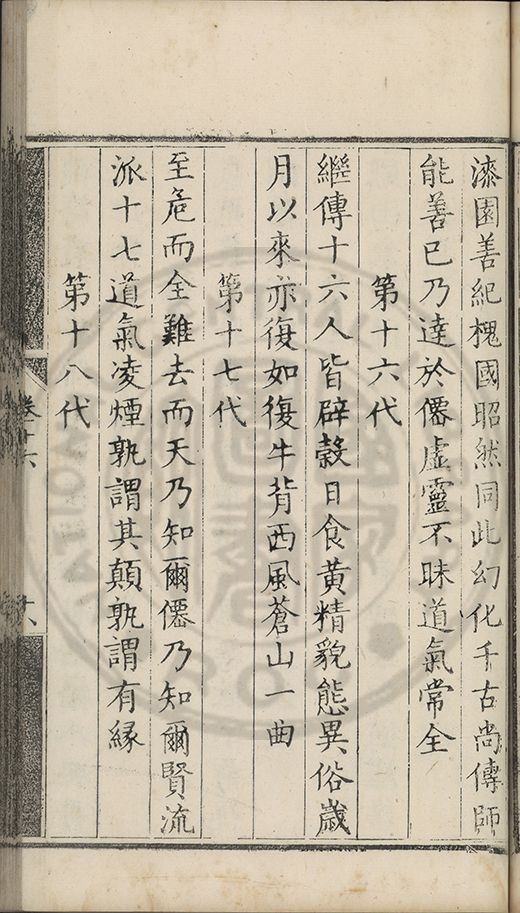 漆園善紀槐國昭然同此幻化千古尚傳師
能善已乃達於僊虛靈不昧道氣常全
第十六代
繼傳十六人皆辟穀日食黃精貌態異俗歲
月以來亦復如復牛背西風蒼山一曲
第十七代
至危而全難去而天乃知爾僊乃知爾賢流
派十七道氣凌煙孰謂其顛孰謂有緣
第十八代
卷十六
十八